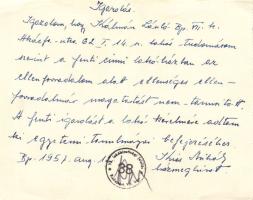 Igazolás.
Igazolom, hogy Kálmán László Bp. VII. k.
Akácfa-utca 32. I. 14. sz. lakos tudomásom
szerint a fenti címü lakóházban az
ellenforradalom alatt ellenséges ellen-
forradalmár magatartást nem tanusított.
A fenti igazolást a lakó kérelmére adtam
ki egyetemi tanulmányai befejezéséhez
Bp. 1957. aug. Kiss Mihály
38 házmegbízott